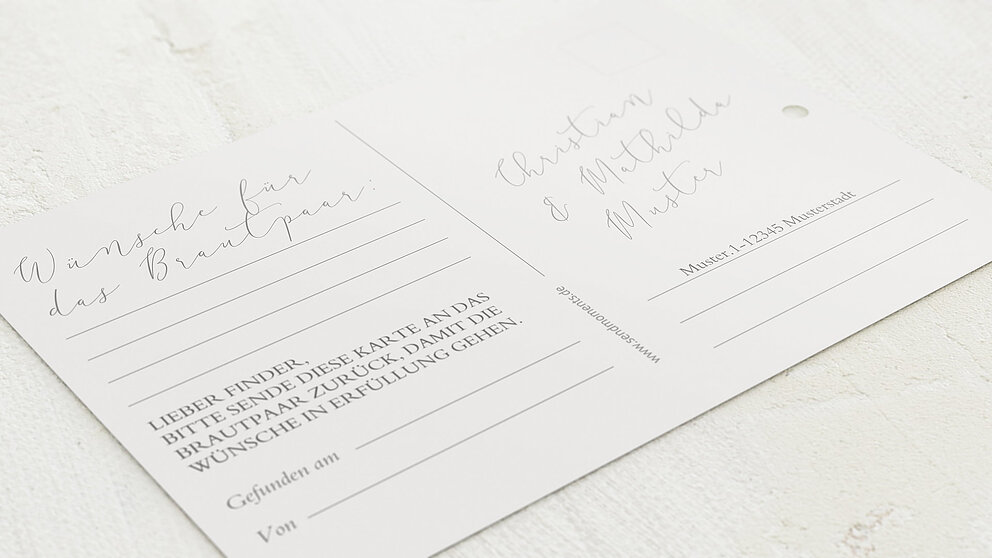 Wünsche für
das Brautpaar:
LIEBER FINDER,
BITTE SENDE DIESE KARTE AN DAS
BRAUTPAAR ZURÜCK, DAMIT DIE
WÜNSCHE IN ERFÜLLUNG GEHEN.
Gefunden am
Von
www.sendmoments.de
Christian
& Mathilda
Muster
Muster.1-12345 Musterstadt